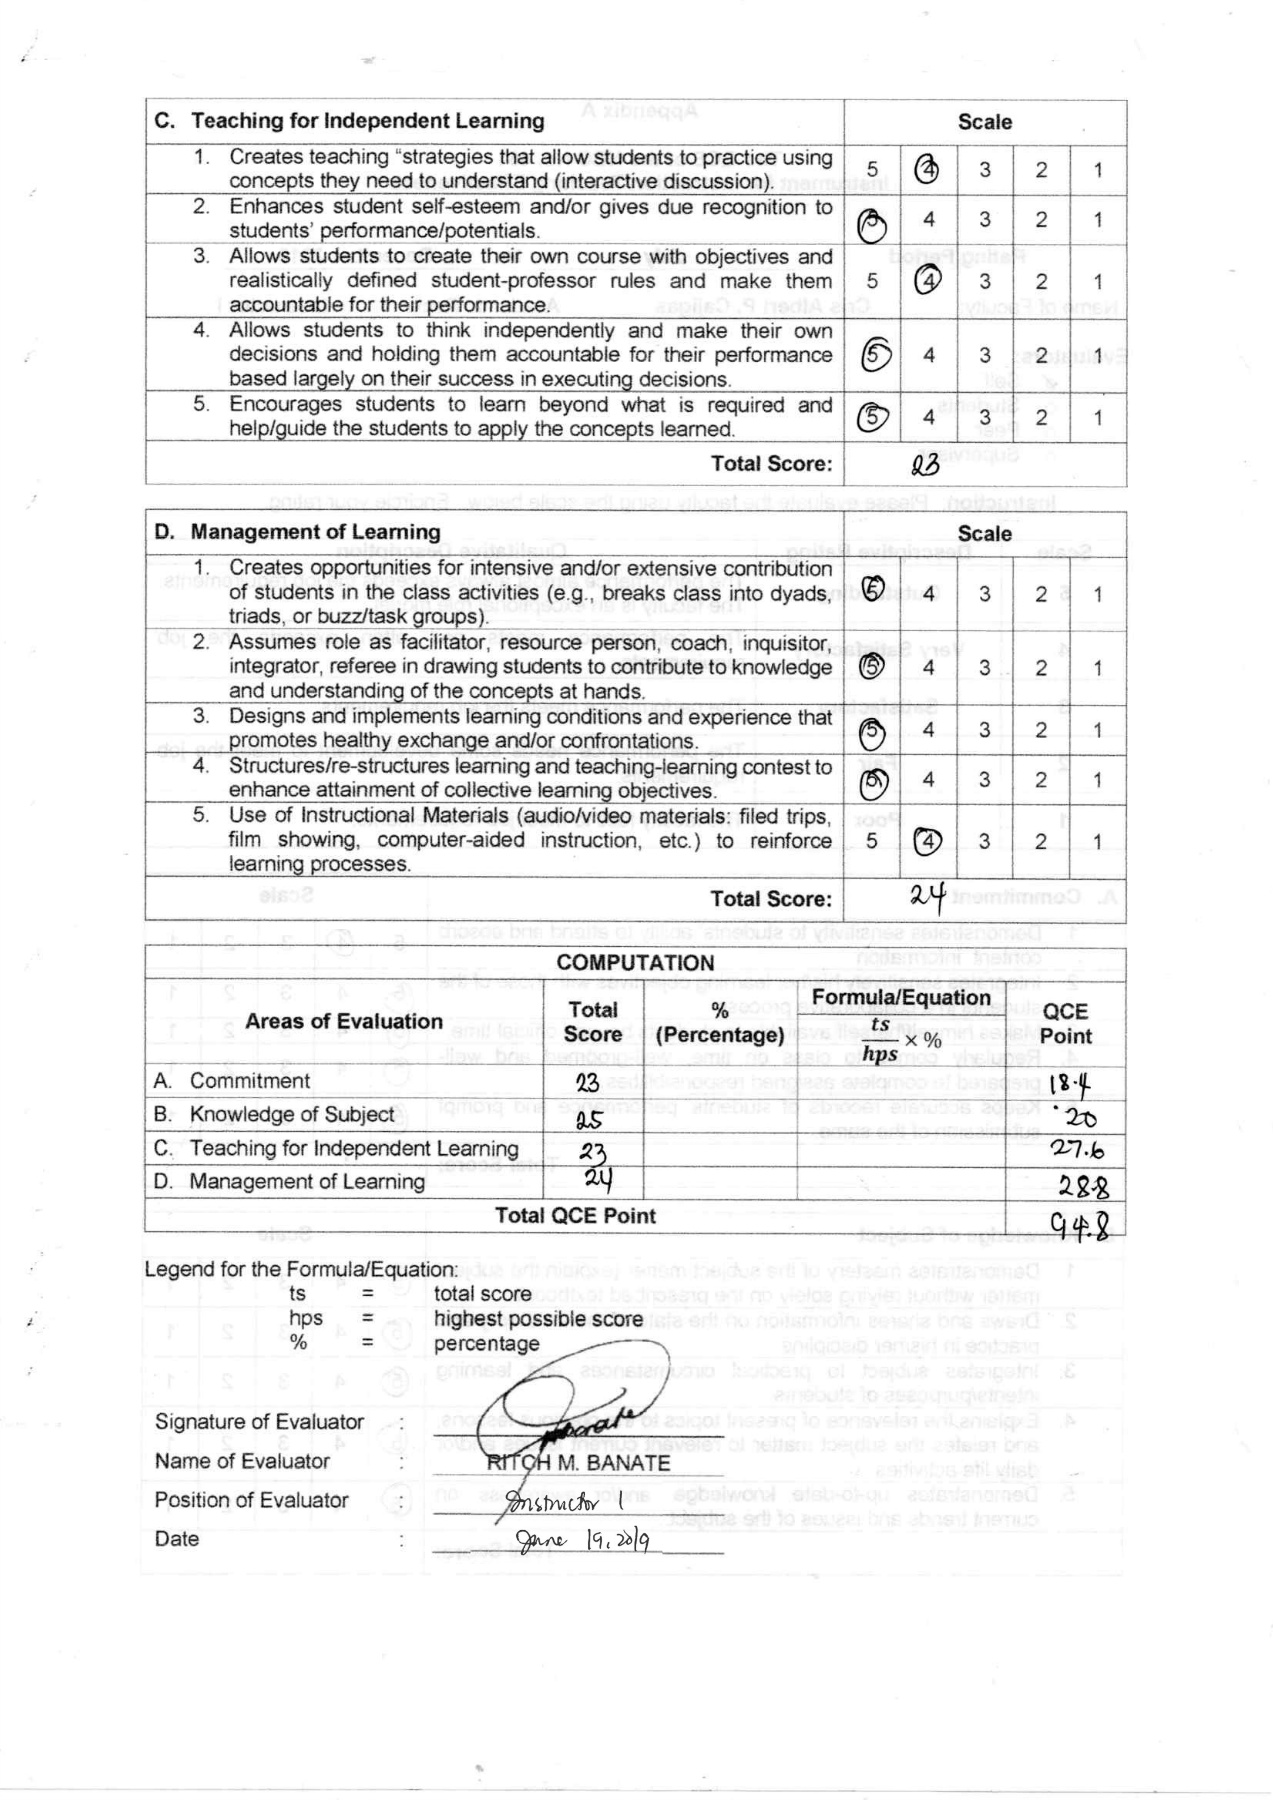 C. Teaching for Independent Learning Scale
1. Creates teaching “strategies that allow students to practice using
concepts they need to understand (interactive discussion). 5 4 3 2 1
2. Enhances student self-esteem and/or gives due recognition to
students’ performance/potentials. 5 4 3 2 1
3. Allows students to create their own course with objectives and
realistically defined student-professor rules and make them 5 4 3 2 1
accountable for their performance.
4. Allows students to think independently and make their own
decisions and holding them accountable for their performance 5 4 3 2 1
based largely on their success in executing decisions.
5. Encourages students to learn beyond what is required and
help/guide the students to apply the concepts learned. 5 4 3 2 1
Total Score: 23
D. Management of Learning Scale
1. Creates opportunities for intensive and/or extensive contribution
of students in the class activities (e.g., breaks class into dyads, 5 4 3 2 1
triads, or buzz/task groups).
2. Assumes role as facilitator, resource person, coach, inquisitor,
integrator, referee in drawing students to contribute to knowledge 5 4 3 2 1
and understanding of the concepts at hands.
3. Designs and implements learning conditions and experience that
promotes healthy exchange and/or confrontations. 5 4 3 2 1
4. Structures/re-structures learning and teaching-learning contest to
enhance attainment of collective learning objectives. 5 4 3 2 1
5. Use of Instructional Materials (audio/video materials: filed trips,
film showing, computer-aided instruction, etc.) to reinforce 5 4 3 2 1
learning processes.
Total Score: 24
COMPUTATION
Areas of Evaluation Total Score % (Percentage) Formula/Equation ts/hps × % QCE Point
A. Commitment 23 18.4
B. Knowledge of Subject 25 20
C. Teaching for Independent Learning 23 27.6
D. Management of Learning 24 28.8
Total QCE Point 94.8
Legend for the Formula/Equation:
ts = total score
hps = highest possible score
% = percentage
Signature of Evaluator :
Name of Evaluator : RITCH M. BANATE
Position of Evaluator : Instructor 1
Date : June 19, 2019